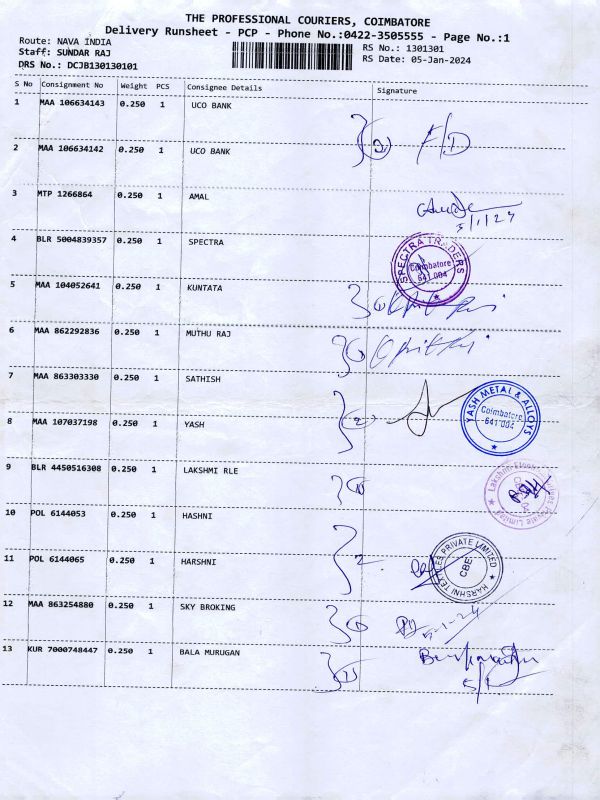 THE PROFESSIONAL COURIERS, COIMBATORE
Delivery Runsheet - PCP - Phone No.:0422-3505555 - Page No.:1
Route: NAVA INDIA
Staff: SUNDAR RAJ
DRS No.: DCJB130130101
RS No.: 1301301
RS Date: 05-Jan-2024
S No Consignment No Weight PCS Consignee Details Signature
1 MAA 106634143 0.250 1 UCO BANK
2 MAA 106634142 0.250 1 UCO BANK
3 MTP 1266864 0.250 1 AMAL
5/1/24
4 BLR 5004839357 0.250 1 SPECTRA
SPECTRA TRADERS
Coimbatore
641 004
5 MAA 104052641 0.250 1 KUNTATA
6 MAA 862292836 0.250 1 MUTHU RAJ
7 MAA 863303330 0.250 1 SATHISH
YASH METAL & ALLOYS
Coimbatore
641 004
8 MAA 107037198 0.250 1 YASH
(2)
9 BLR 4450516308 0.250 1 LAKSHMI RLE
10 POL 6144053 0.250 1 HASHNI
11 POL 6144065 0.250 1 HARSHNI
2
HARSHNI TEXTILES PRIVATE LIMITED
CBE
12 MAA 863254880 0.250 1 SKY BROKING
5-1-24
13 KUR 7000748447 0.250 1 BALA MURUGAN
5/1